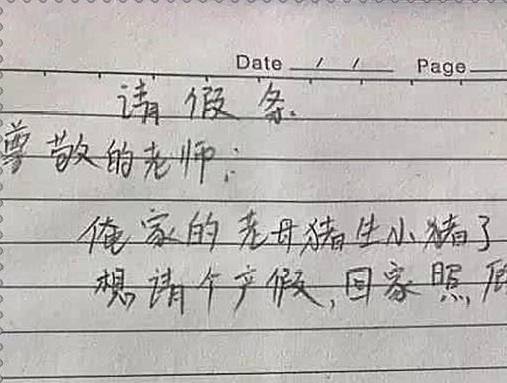 Date / / Page
请假条.
尊敬的老师:
俺家的老母猪生小猪了
想请个产假,回家照顾